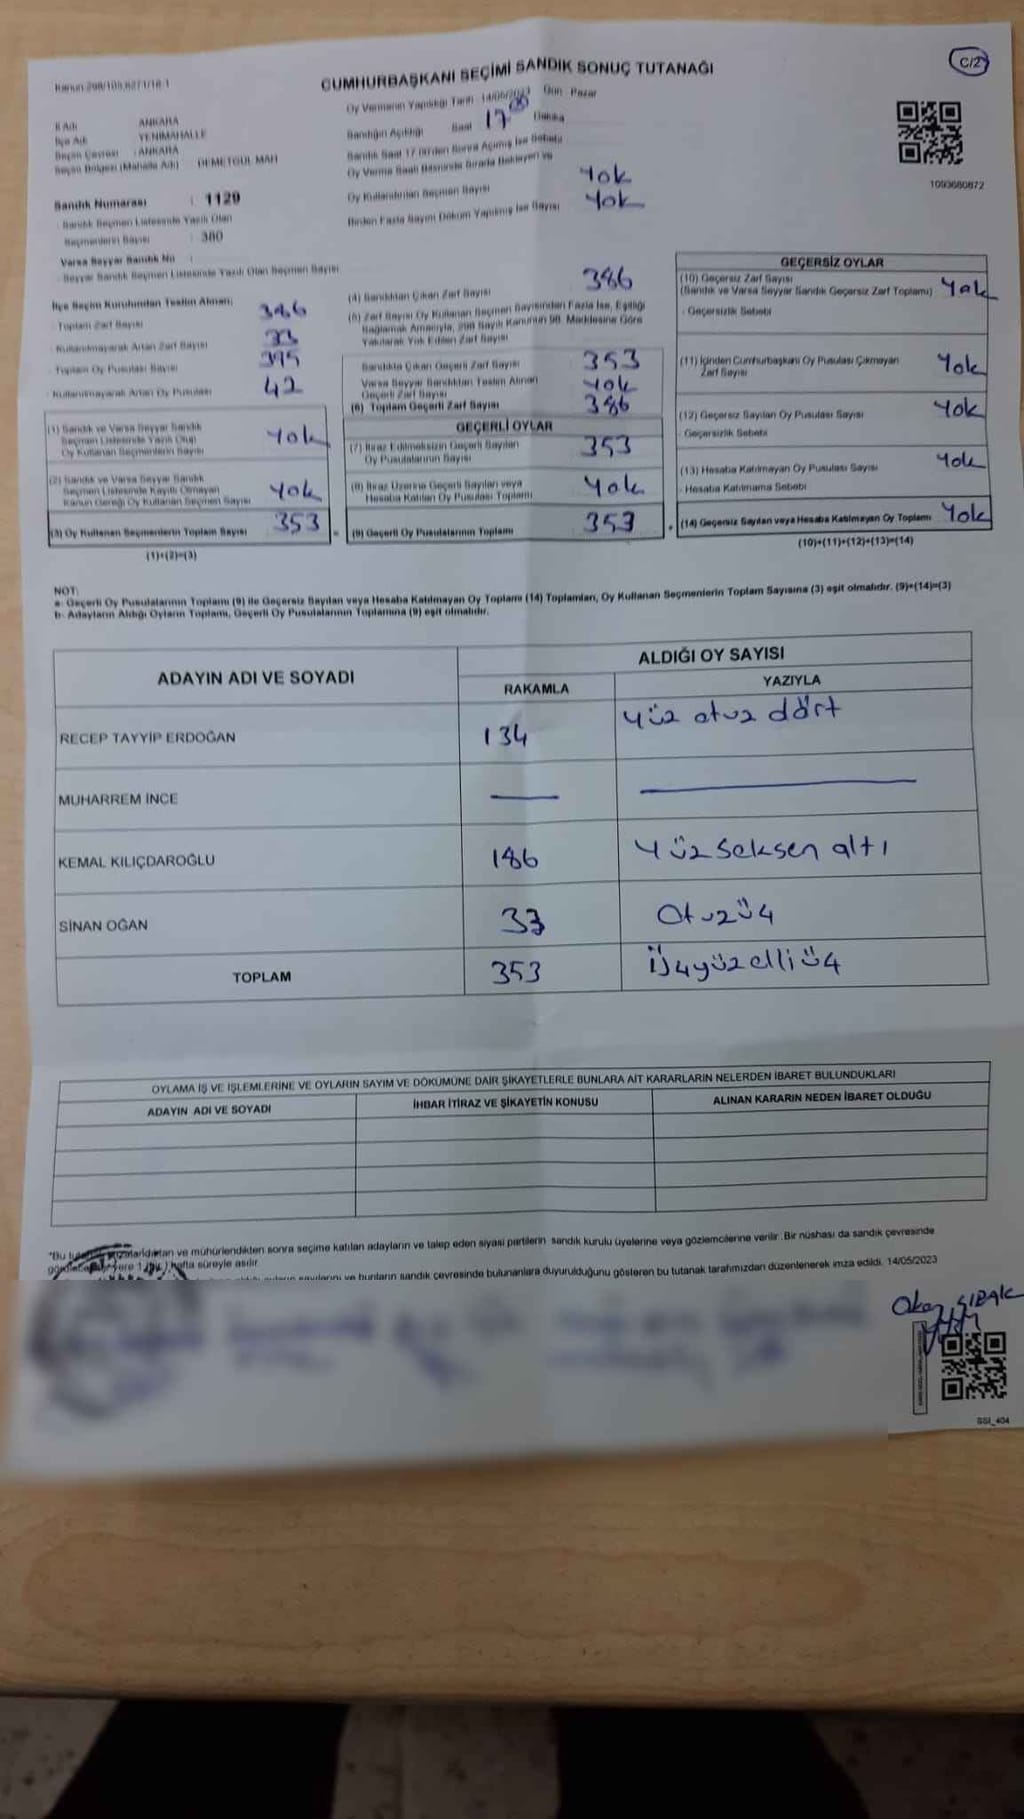 Kanun 298/105,6271/18-1
CUMHURBAŞKANI SEÇİMİ SANDIK SONUÇ TUTANAĞI
C/2
Oy Vermenin Yapıldığı Tarih : 14/05/2023 Gün : Pazar
İl Adı ANKARA
İlçe Adı YENİMAHALLE
Seçim Çevresi : ANKARA
Seçim Bölgesi (Mahalle Adı) : DEMETGÜL MAH
Sandığın Açıldığı Saat 17 00 Dakika
Sandık Saat 17.00'den Sonra Açılmış İse Sebebi
Oy Verme Saati Bitiminde Sırada Bekleyen ve
Oy Kullandırılan Seçmen Sayısı Yok
Birden Fazla Sayım Döküm Yapılmış İse Sayısı Yok
1093680872
Sandık Numarası : 1129
Sandık Seçmen Listesinde Yazılı Olan
Seçmenlerin Sayısı : 380
Varsa Seyyar Sandık No :
Seyyar Sandık Seçmen Listesinde Yazılı Olan Seçmen Sayısı
İlçe Seçim Kurulundan Teslim Alınan;
Toplam Zarf Sayısı 386
Kullanılmayarak Artan Zarf Sayısı 33
Toplam Oy Pusulası Sayısı 395
Kullanılmayarak Artan Oy Pusulası 42
(1) Sandık ve Varsa Seyyar Sandık
Seçmen Listesinde Yazılı Olup
Oy Kullanan Seçmenlerin Sayısı Yok
(2) Sandık ve Varsa Seyyar Sandık
Seçmen Listesinde Kayıtlı Olmayan
Kanun Gereği Oy Kullanan Seçmen Sayısı Yok
(3) Oy Kullanan Seçmenlerin Toplam Sayısı 353
(1)+(2)=(3)
(4) Sandıktan Çıkan Zarf Sayısı 386
(5) Zarf Sayısı Oy Kullanan Seçmen Sayısından Fazla İse, Eşitliği
Sağlamak Amacıyla, 298 Sayılı Kanunun 98. Maddesine Göre
Yakılarak Yok Edilen Zarf Sayısı
Sandıkta Çıkan Geçerli Zarf Sayısı 353
Varsa Seyyar Sandıktan Teslim Alınan
Geçerli Zarf Sayısı Yok
(6) Toplam Geçerli Zarf Sayısı 386
GEÇERLİ OYLAR
(7) İtiraz Edilmeksizin Geçerli Sayılan
Oy Pusulalarının Sayısı 353
(8) İtiraz Üzerine Geçerli Sayılan veya
Hesaba Katılan Oy Pusulası Toplamı Yok
= (9) Geçerli Oy Pusulalarının Toplamı 353
GEÇERSİZ OYLAR
(10) Geçersiz Zarf Sayısı
(Sandık ve Varsa Seyyar Sandık Geçersiz Zarf Toplamı) Yok
- Geçersizlik Sebebi
(11) İçinden Cumhurbaşkanı Oy Pusulası Çıkmayan
Zarf Sayısı Yok
(12) Geçersiz Sayılan Oy Pusulası Sayısı Yok
- Geçersizlik Sebebi
(13) Hesaba Katılmayan Oy Pusulası Sayısı Yok
- Hesaba Katılmama Sebebi
+ (14) Geçersiz Sayılan veya Hesaba Katılmayan Oy Toplamı Yok
(10)+(11)+(12)+(13)=(14)
NOT:
a- Geçerli Oy Pusulalarının Toplamı (9) ile Geçersiz Sayılan veya Hesaba Katılmayan Oy Toplamı (14) Toplamları, Oy Kullanan Seçmenlerin Toplam Sayısına (3) eşit olmalıdır. (9)+(14)=(3)
b- Adayların Aldığı Oyların Toplamı, Geçerli Oy Pusulalarının Toplamına (9) eşit olmalıdır.
ADAYIN ADI VE SOYADI ALDIĞI OY SAYISI
RAKAMLA YAZIYLA
RECEP TAYYİP ERDOĞAN 134 Yüz otuz dört
MUHARREM İNCE
KEMAL KILIÇDAROĞLU 186 Yüz seksen altı
SİNAN OĞAN 33 Otuz üç
TOPLAM 353 Üçyüz elli üç
OYLAMA İŞ VE İŞLEMLERİNE VE OYLARIN SAYIM VE DÖKÜMÜNE DAİR ŞİKAYETLERLE BUNLARA AİT KARARLARIN NELERDEN İBARET BULUNDUKLARI
ADAYIN ADI VE SOYADI İHBAR İTİRAZ VE ŞİKAYETİN KONUSU ALINAN KARARIN NEDEN İBARET OLDUĞU
*Bu tutanak imzalandıktan ve mühürlendikten sonra seçime katılan adayların ve talep eden siyasi partilerin sandık kurulu üyelerine veya gözlemcilerine verilir. Bir nüshası da sandık çevresinde
görülebilir yere 1 (bir) hafta süreyle asılır.
sayılarını ve bunların sandık çevresinde bulunanlara duyurulduğunu gösteren bu tutanak tarafımızdan düzenlenerek imza edildi. 14/05/2023
SSI_404